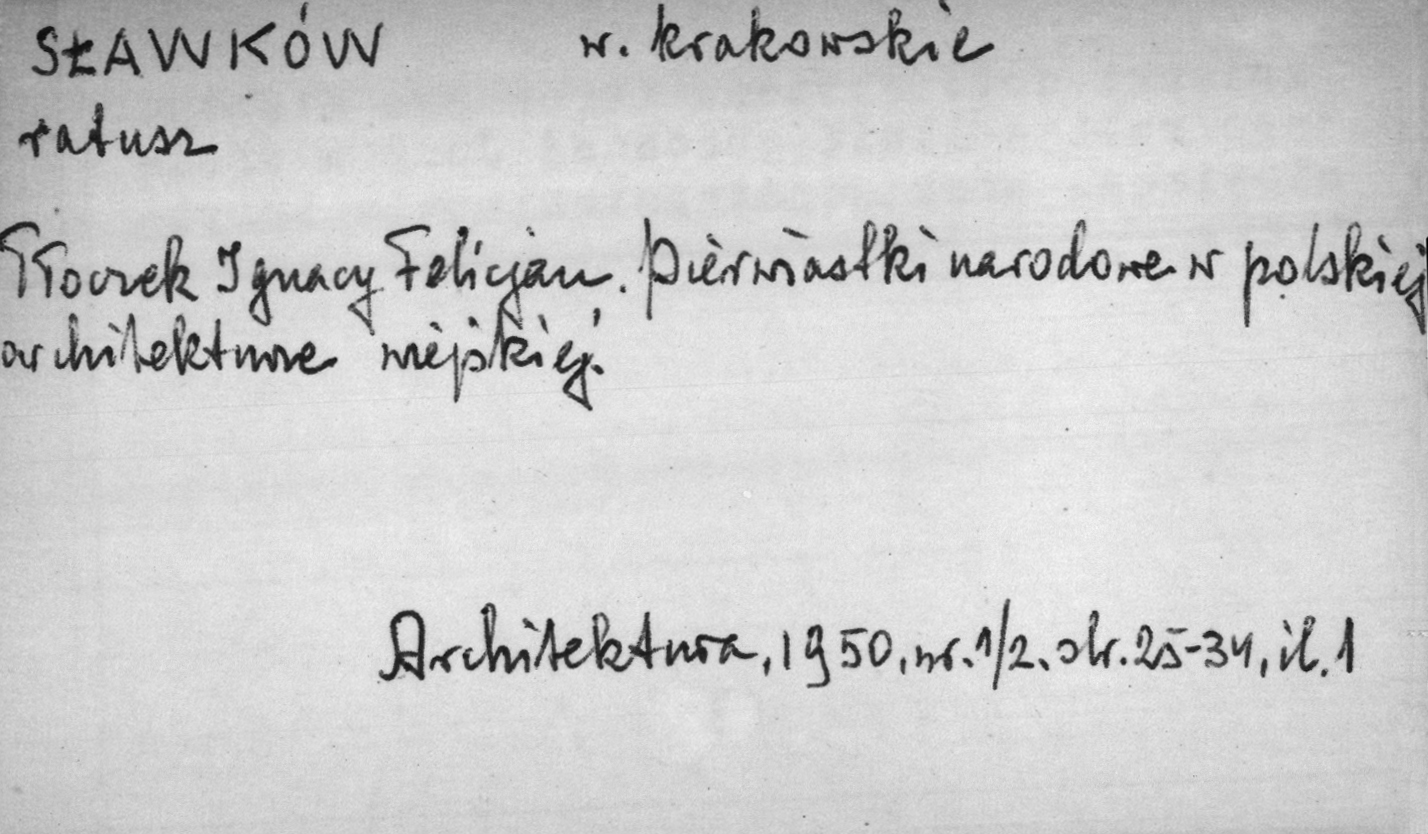 SŁAWKÓW w. krakowskie
ratusz
Tłoczek Ignacy Felicjan. Pierwiastki narodowe w polskiej
architekturze miejskiej.
Architektura, 1950, nr. 1/2. str. 25-34, il. 1